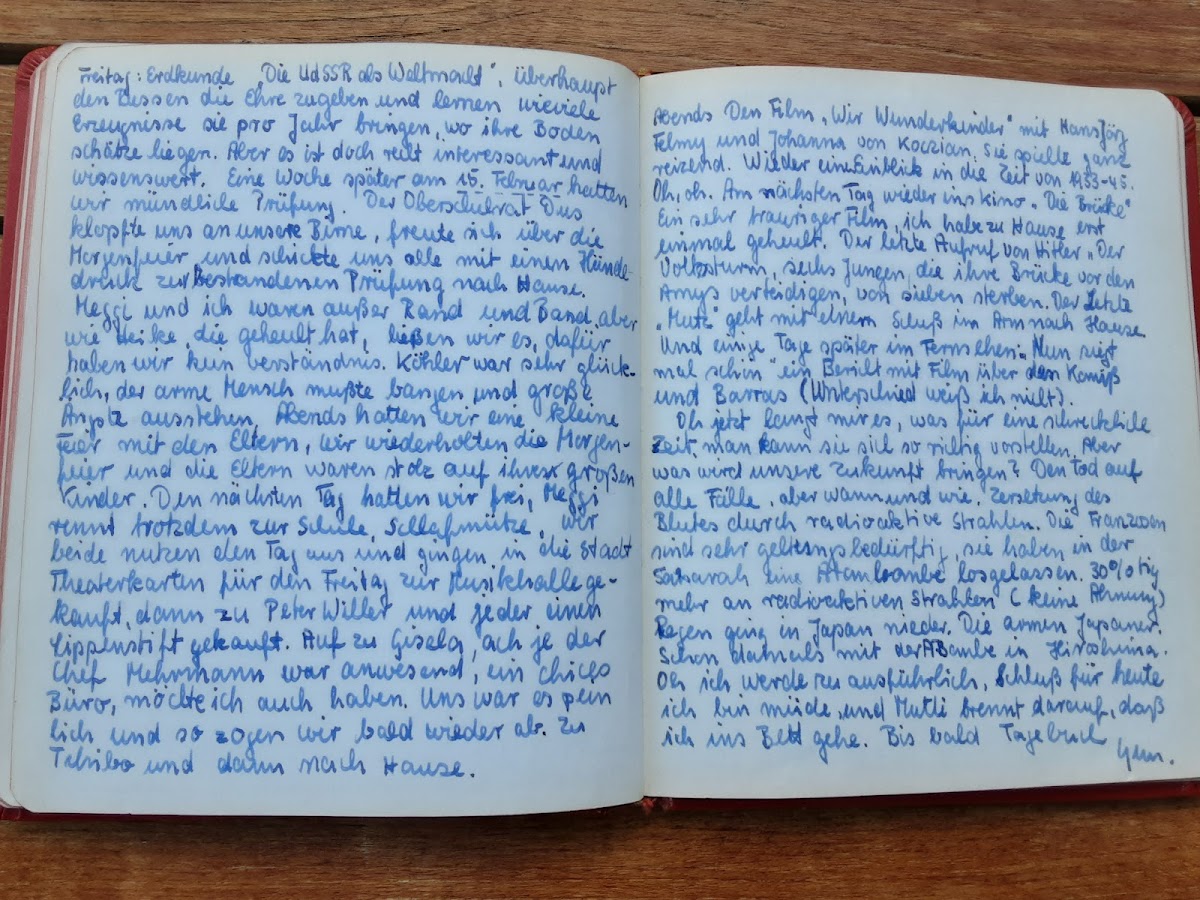 Freitag: Erdkunde „Die UdSSR als Weltmacht", überhaupt
den Russen die Ehre zugeben und lernen wieviele
Erzeugnisse sie pro Jahr bringen, wo ihre Boden
schätze liegen. Aber es ist doch recht interessant und
wissenswert. Eine Woche später am 15. Februar hatten
wir mündliche Prüfung. Der Oberschulrat Dus
klopfte uns an unsere Birne, freute sich über die
Morgenfeier und schickte uns alle mit einen Hände-
druck zur bestandenen Prüfung nach Hause.
Meggi und ich waren außer Rand und Band, aber
wie Heike, die geheult hat, ließen wir es, dafür
haben wir kein Verständnis. Köhler war sehr glück-
lich, der arme Mensch mußte bangen und große
Angst ausstehen. Abends hatten wir eine kleine
Feier mit den Eltern, wir wiederholten die Morgen-
feier und die Eltern waren stolz auf ihren großen
Kinder. Den nächsten Tag hatten wir frei, Meggi
rennt trotzdem zur Schule, Schlafmütze, wir
beide nutzen den Tag aus und gingen in die Stadt
Theaterkarten für den Freitag zur Musikhalle ge-
kauft, dann zu Peter Willer und jeder einen
Lippenstift gekauft. Auf zu Gisela, ach je der
Chef Mehrmann war anwesend, ein chices
Büro, möchte ich auch haben. Uns war es pein
lich und so zogen wir bald wieder ab. Zu
Tchibo und dann nach Hause.
Abends Den Film „Wir Wunderkinder" mit Hansjörg
Felmy und Johanna von Koczian, sie spielte ganz
reizend. Wieder ein Einblick in die Zeit von 1933-45.
Oh, oh. Am nächsten Tag wieder ins Kino „Die Brücke"
Ein sehr trauriger Film, ich habe zu Hause erst
einmal geheult. Der letzte Aufruf von Hitler „Der
Volkssturm, sechs Jungen, die ihre Brücke vor den
Amys verteidigen, von sieben sterben. Der Letzte
„Mutz" geht mit einem Schuß im Arm nach Hause
Und einige Tage später im Fernsehen: „Nun siegt
mal schön" ein Bericht mit Film über den Komiß
und Barras (Unterschied weiß ich nicht).
Oh jetzt langt mir es, was für eine schreckliche
Zeit, man kann sie sich so richtig vorstellen. Aber
was wird unsere Zukunft bringen? Den Tod auf
alle Fälle, aber wann und wie. Zersetzung des
Blutes durch radioaktive Strahlen. Die Franzosen
sind sehr geltungsbedürftig, sie haben in der
Saharah eine Atombombe losgelassen. 30%tig
mehr an radioaktiven Strahlen (keine Ahnung)
Regen ging in Japan nieder. Die armen Japaner.
Schon damals mit der ABombe in Hiroshima.
Oh ich werde zu ausführlich, Schluß für heute
ich bin müde und Mutti brennt darauf, daß
ich ins Bett gehe. Bis bald Tagebuch